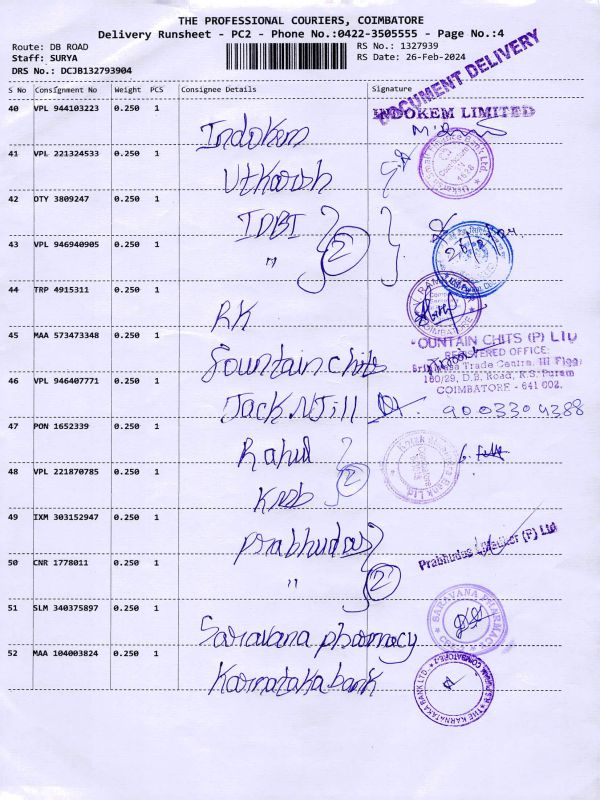 THE PROFESSIONAL COURIERS, COIMBATORE
Delivery Runsheet - PC2 - Phone No.:0422-3505555 - Page No.:4
Route: DB ROAD
RS No.: 1327939
Staff: SURYA
RS Date: 26-Feb-2024
DRS No.: DCJB132793904
DOCUMENT DELIVERY
S No Consignment No Weight PCS Consignee Details Signature
40 VPL 944103223 0.250 1
INDOKEM LIMITED
Indokem
41 VPL 221324533 0.250 1
Utkarsh
42 DTY 3809247 0.250 1
IDBI
43 VPL 946940905 0.250 1
" 2
44 TRP 4915311 0.250 1
RK
45 MAA 573473348 0.250 1
OUNTAIN CHITS (P) LTD
REGISTERED OFFICE:
Trade Centre, III Floor
160/29, D.B. Road, R.S. Puram
COIMBATORE - 641 002.
Fountain chits
46 VPL 946407771 0.250 1
Jack N Jill 9003304388
47 PON 1652339 0.250 1
Rahul
48 VPL 221870785 0.250 1
2
KMB
49 IXM 303152947 0.250 1
Prabhudas
Prabhudas (P) Ltd
50 CNR 1778011 0.250 1
" 2
51 SLM 340375897 0.250 1
SARAVANA PHARMACY
Saravana pharmacy
52 MAA 104003824 0.250 1
Karnataka bank
THE KARNATAKA BANK LTD.